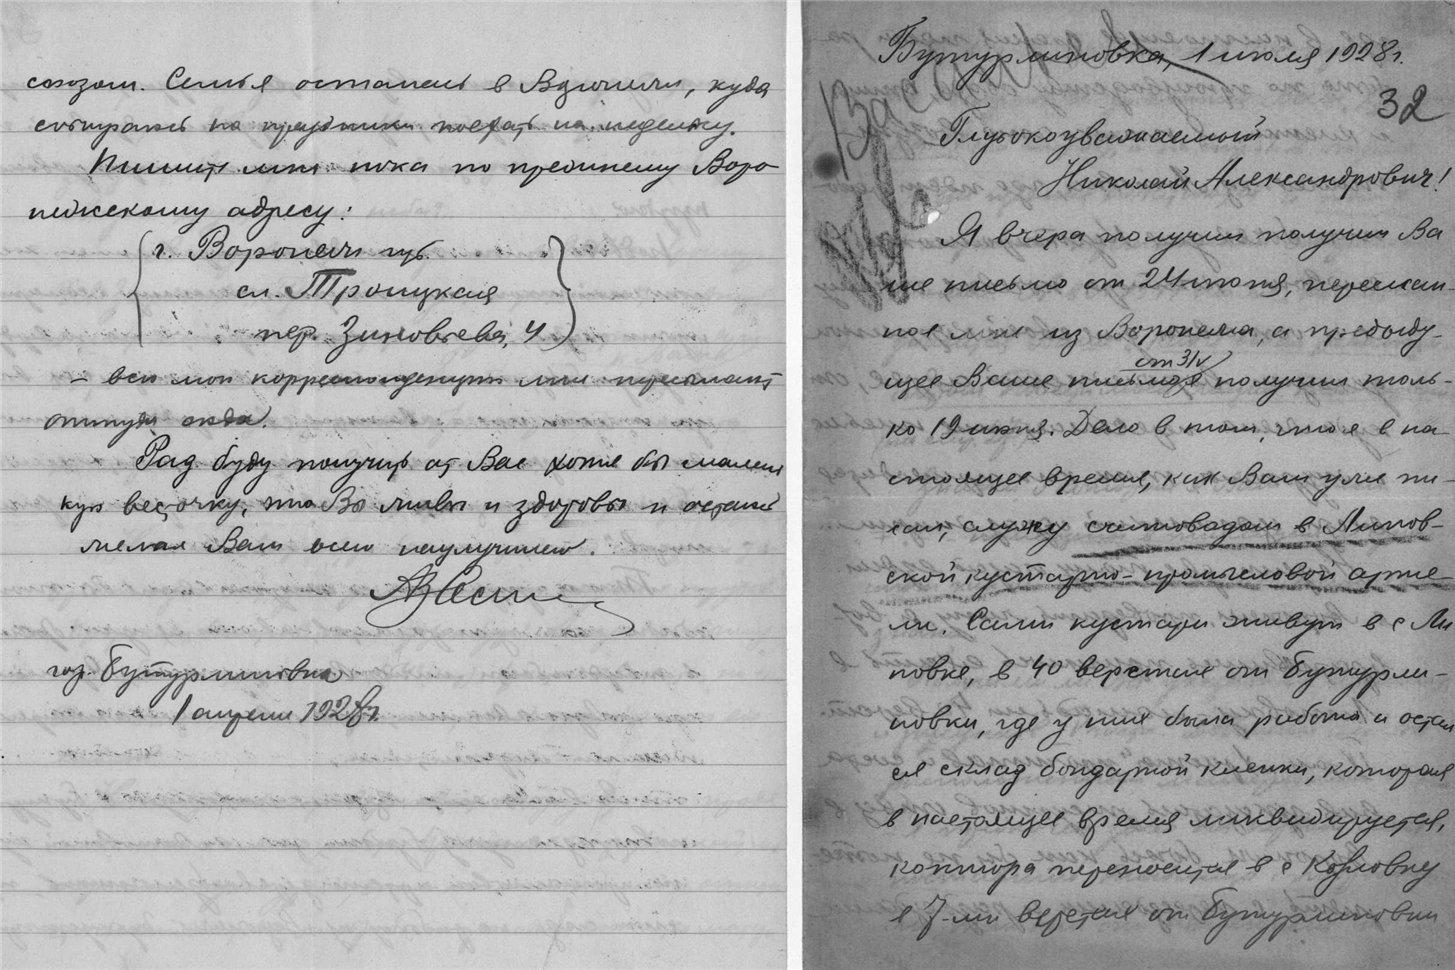 союзом. Семья осталась в Воронеже, куда
собираюсь на праздники поехать на недельку.
Пишите мне пока по прежнему Воро
нежскому адресу:
г. Воронеж губ.
сл. Троицкая
пер. Зиновьева, 4
– всю мою корреспонденцию мне пересылают
оттуда сюда.
Рад буду получить от Вас хотя бы малень
кую весточку, что Вы живы и здоровы и остаюсь
желая Вам всего наилучшего.
гор. Бутурлиновка
1 апреля 1928 г.
Бутурлиновка, 1 июля 1928 г.
32
Глубокоуважаемый
Николай Александрович!
Я вчера получил получил Ва
ше письмо от 24 июня, переслан-
ное мне из Воронежа, а предыду-
щее Ваше письмо я получил толь-
от 31/V
ко 19 июня. Дело в том, что я в на
стоящее время, как Вам уже пи-
сал, служу счетоводом в Липов-
ской кустарно-промысловой арте
ли. Сами кустари живут в с Ли
повке, в 40 верстах от Бутурли-
новки, где у них была работа и остал
ся склад бондарной клепки, которая
в настоящее время ликвидируется,
контора переносится в с Козловку
в 7-ми верстах от Бутурлиновки